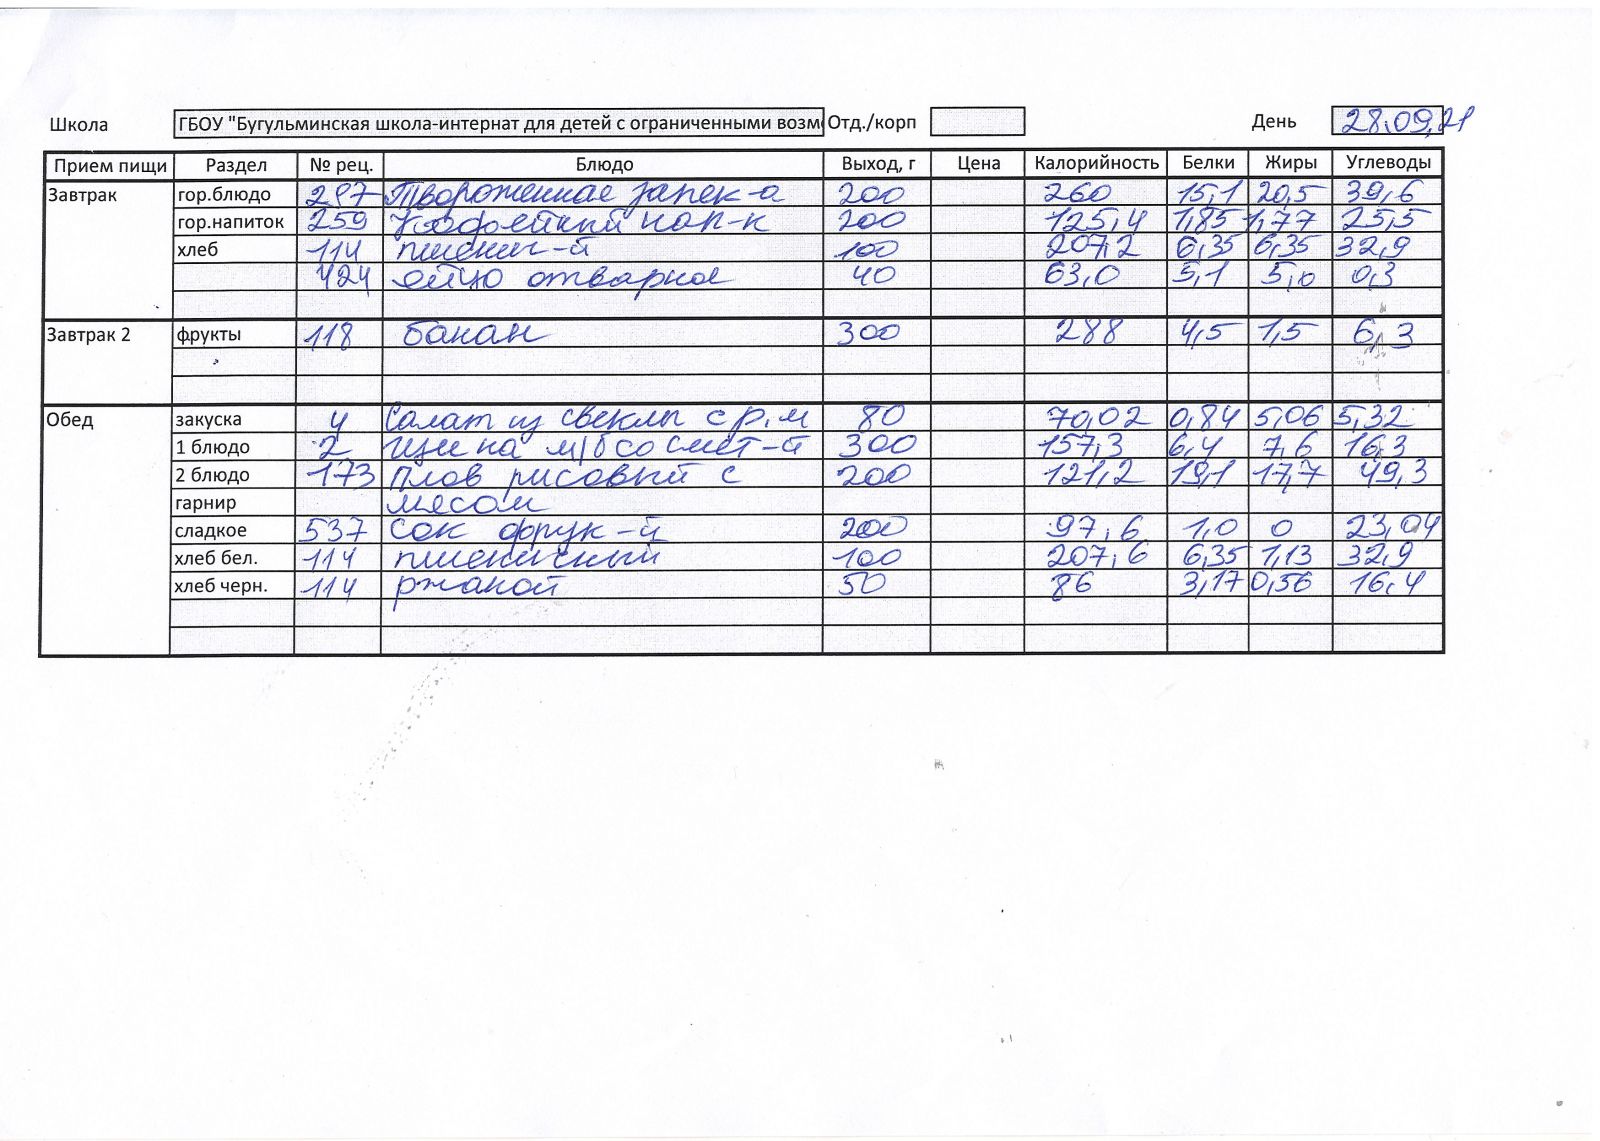 Школа ГБОУ "Бугульминская школа-интернат для детей с ограниченными возм Отд./корп День 28.09.21
Прием пищи Раздел № рец. Блюдо Выход, г Цена Калорийность Белки Жиры Углеводы
Завтрак гор.блюдо 297 Твороженная запек-а 200 260 15,1 20,5 39,6
гор.напиток 259 Кофейный нап-к 200 125,4 1,85 1,77 25,5
хлеб 114 пшенич-й 100 207,2 6,35 6,35 32,9
424 яйцо отварное 40 63,0 5,1 5,0 0,3
Завтрак 2 фрукты 118 банан 300 288 4,5 1,5 6,3
Обед закуска 4 Салат из свеклы с р.м 80 70,02 0,84 5,06 5,32
1 блюдо 2 Щи на м/б со смет-й 300 157,3 6,4 7,6 16,3
2 блюдо 173 Плов рисовый с 200 121,2 19,1 17,7 49,3
гарнир мясом
сладкое 537 Сок фрук-й 200 97,6 1,0 0 23,04
хлеб бел. 114 пшеничный 100 207,6 6,35 1,13 32,9
хлеб черн. 114 ржаной 50 86 3,17 0,56 16,4